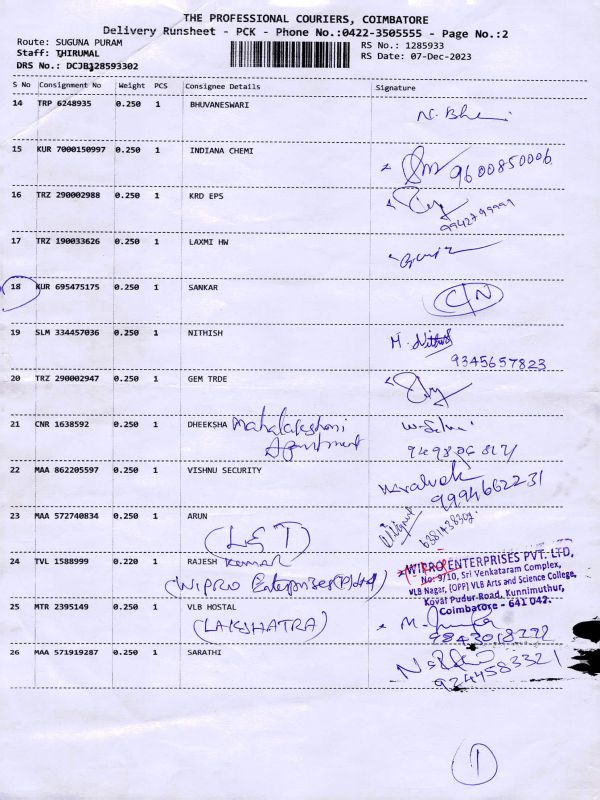 THE PROFESSIONAL COURIERS, COIMBATORE
Delivery Runsheet - PCK - Phone No.:0422-3505555 - Page No.:2
Route: SUGUNA PURAM
Staff: THIRUMAL
DRS No.: DCJB128593302
RS No.: 1285933
RS Date: 07-Dec-2023
S No Consignment No Weight PCS Consignee Details Signature
14 TRP 6248935 0.250 1 BHUVANESWARI
15 KUR 7000150997 0.250 1 INDIANA CHEMI 9600850006
16 TRZ 290002988 0.250 1 KRD EPS 9942799991
17 TRZ 190033626 0.250 1 LAXMI HW
18 KUR 695475175 0.250 1 SANKAR C/N
19 SLM 334457036 0.250 1 NITHISH M. Nithish
9345657823
20 TRZ 290002947 0.250 1 GEM TRDE
21 CNR 1638592 0.250 1 DHEEKSHA Mahalakshmi
Apartment
22 MAA 862205597 0.250 1 VISHNU SECURITY 9994662231
23 MAA 572740834 0.250 1 ARUN
(L&T)
24 TVL 1588999 0.220 1 RAJESH Kumar
(Wipro Enterprises (P) Ltd)
WIPRO ENTERPRISES PVT. LTD,
No: 9/10, Sri Venkataram Complex,
VLB Nagar, (OPP) VLB Arts and Science College,
Kovai Pudur Road, Kunnimuthur,
Coimbatore - 641 042.
25 MTR 2395149 0.250 1 VLB HOSTAL
(LAKSHATRA)
26 MAA 571919287 0.250 1 SARATHI 9244583321
1